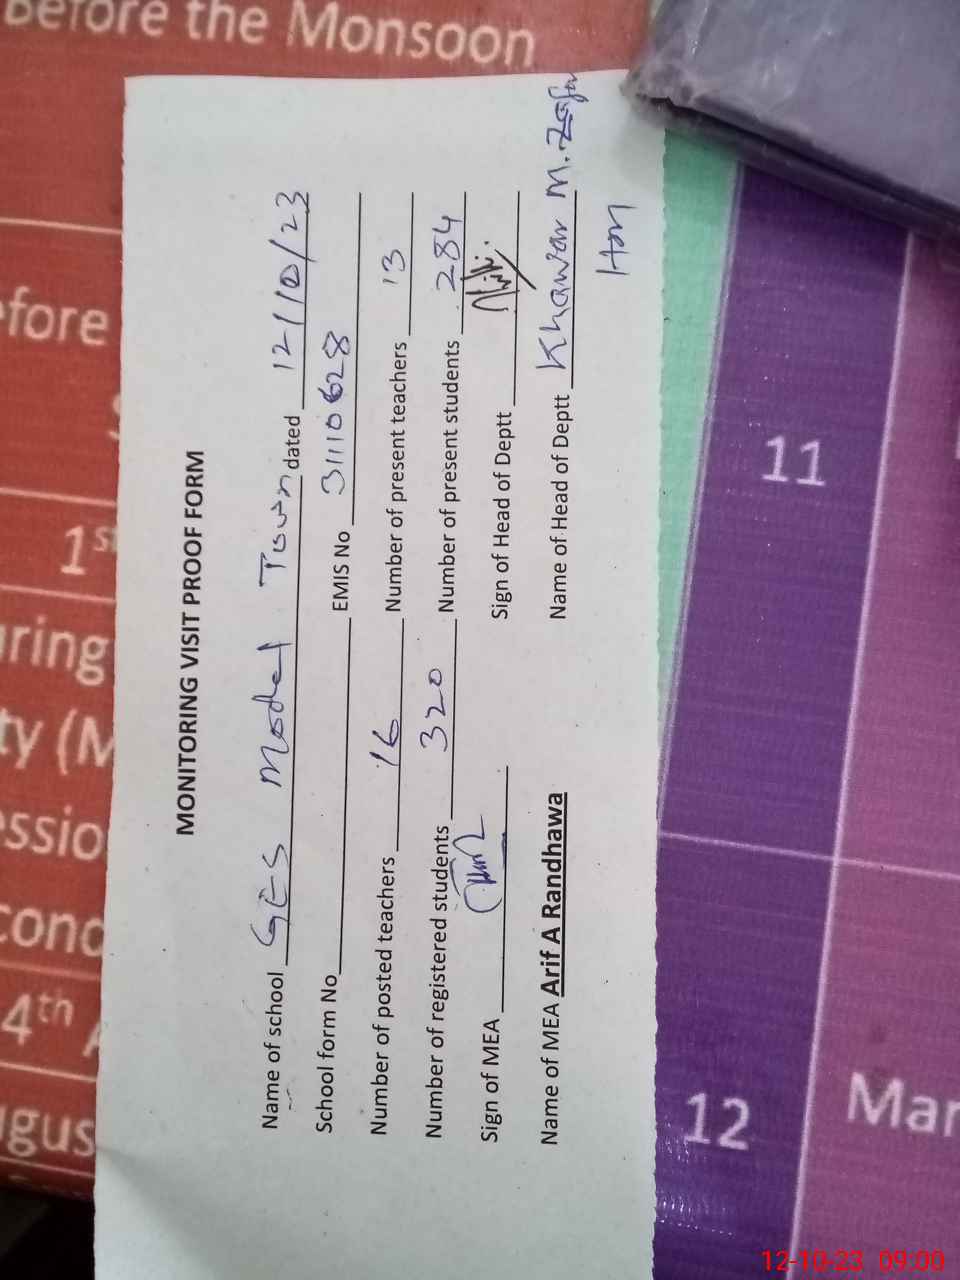 Before the Monsoon
efore
1st
uring
ty (M
essio
cond
4th A
ugus
MONITORING VISIT PROOF FORM
Name of school GES Model Town dated 12/10/23
School form No EMIS No 31110628
Number of posted teachers 16 Number of present teachers 13
Number of registered students 320 Number of present students 284
Sign of MEA Sign of Head of Deptt
Name of MEA Arif A Randhawa Name of Head of Deptt Khawar M. Zafar
HM
11
12
Mar
12-10-23 09:00